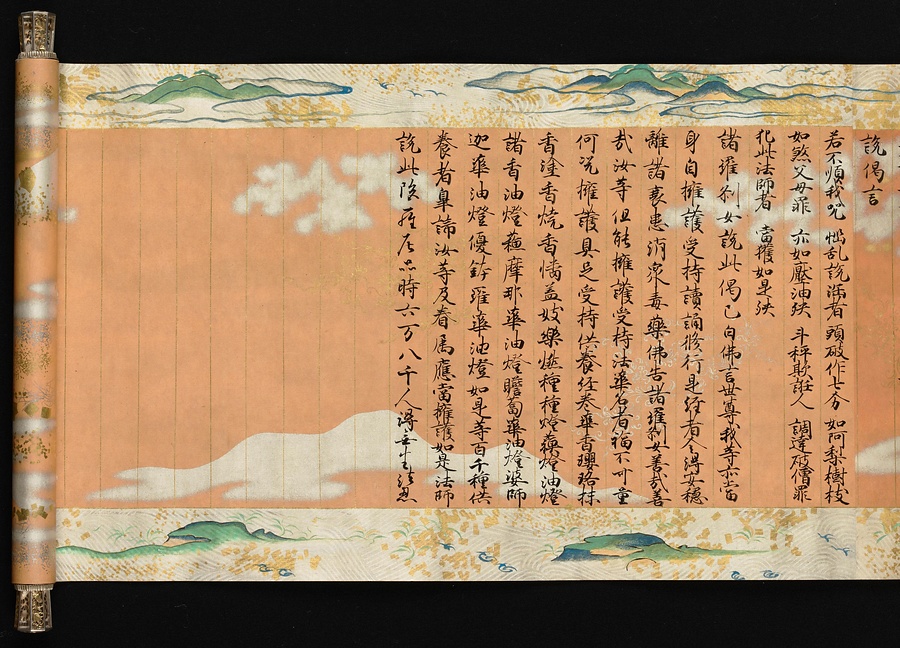 說偈言
若不順我呪 惱乱說法者 頭破作七分 如阿梨樹枝
如煞父母罪 亦如壓油殃 斗秤欺誑人 調達破僧罪
犯此法師者 當獲如是殃
諸羅刹女說此偈已白佛言世尊我等亦當
身自擁護受持讀誦修行是經者令得安穩
離諸衰患消衆毒藥佛告諸羅刹女善哉善
哉汝等但能擁護受持法華名者福不可量
何況擁護具足受持供養經卷華香瓔珞抹
香塗香燒香幡盖妓樂燃種種燈蘓燈油燈
諸香油燈蘓摩那華油燈瞻蔔華油燈婆師
迦華油燈優鉢羅華油燈如是等百千種供
養者皐諦汝等及眷属應當擁護如是法師
說此陀羅尼品時六万八千人得無生法忍